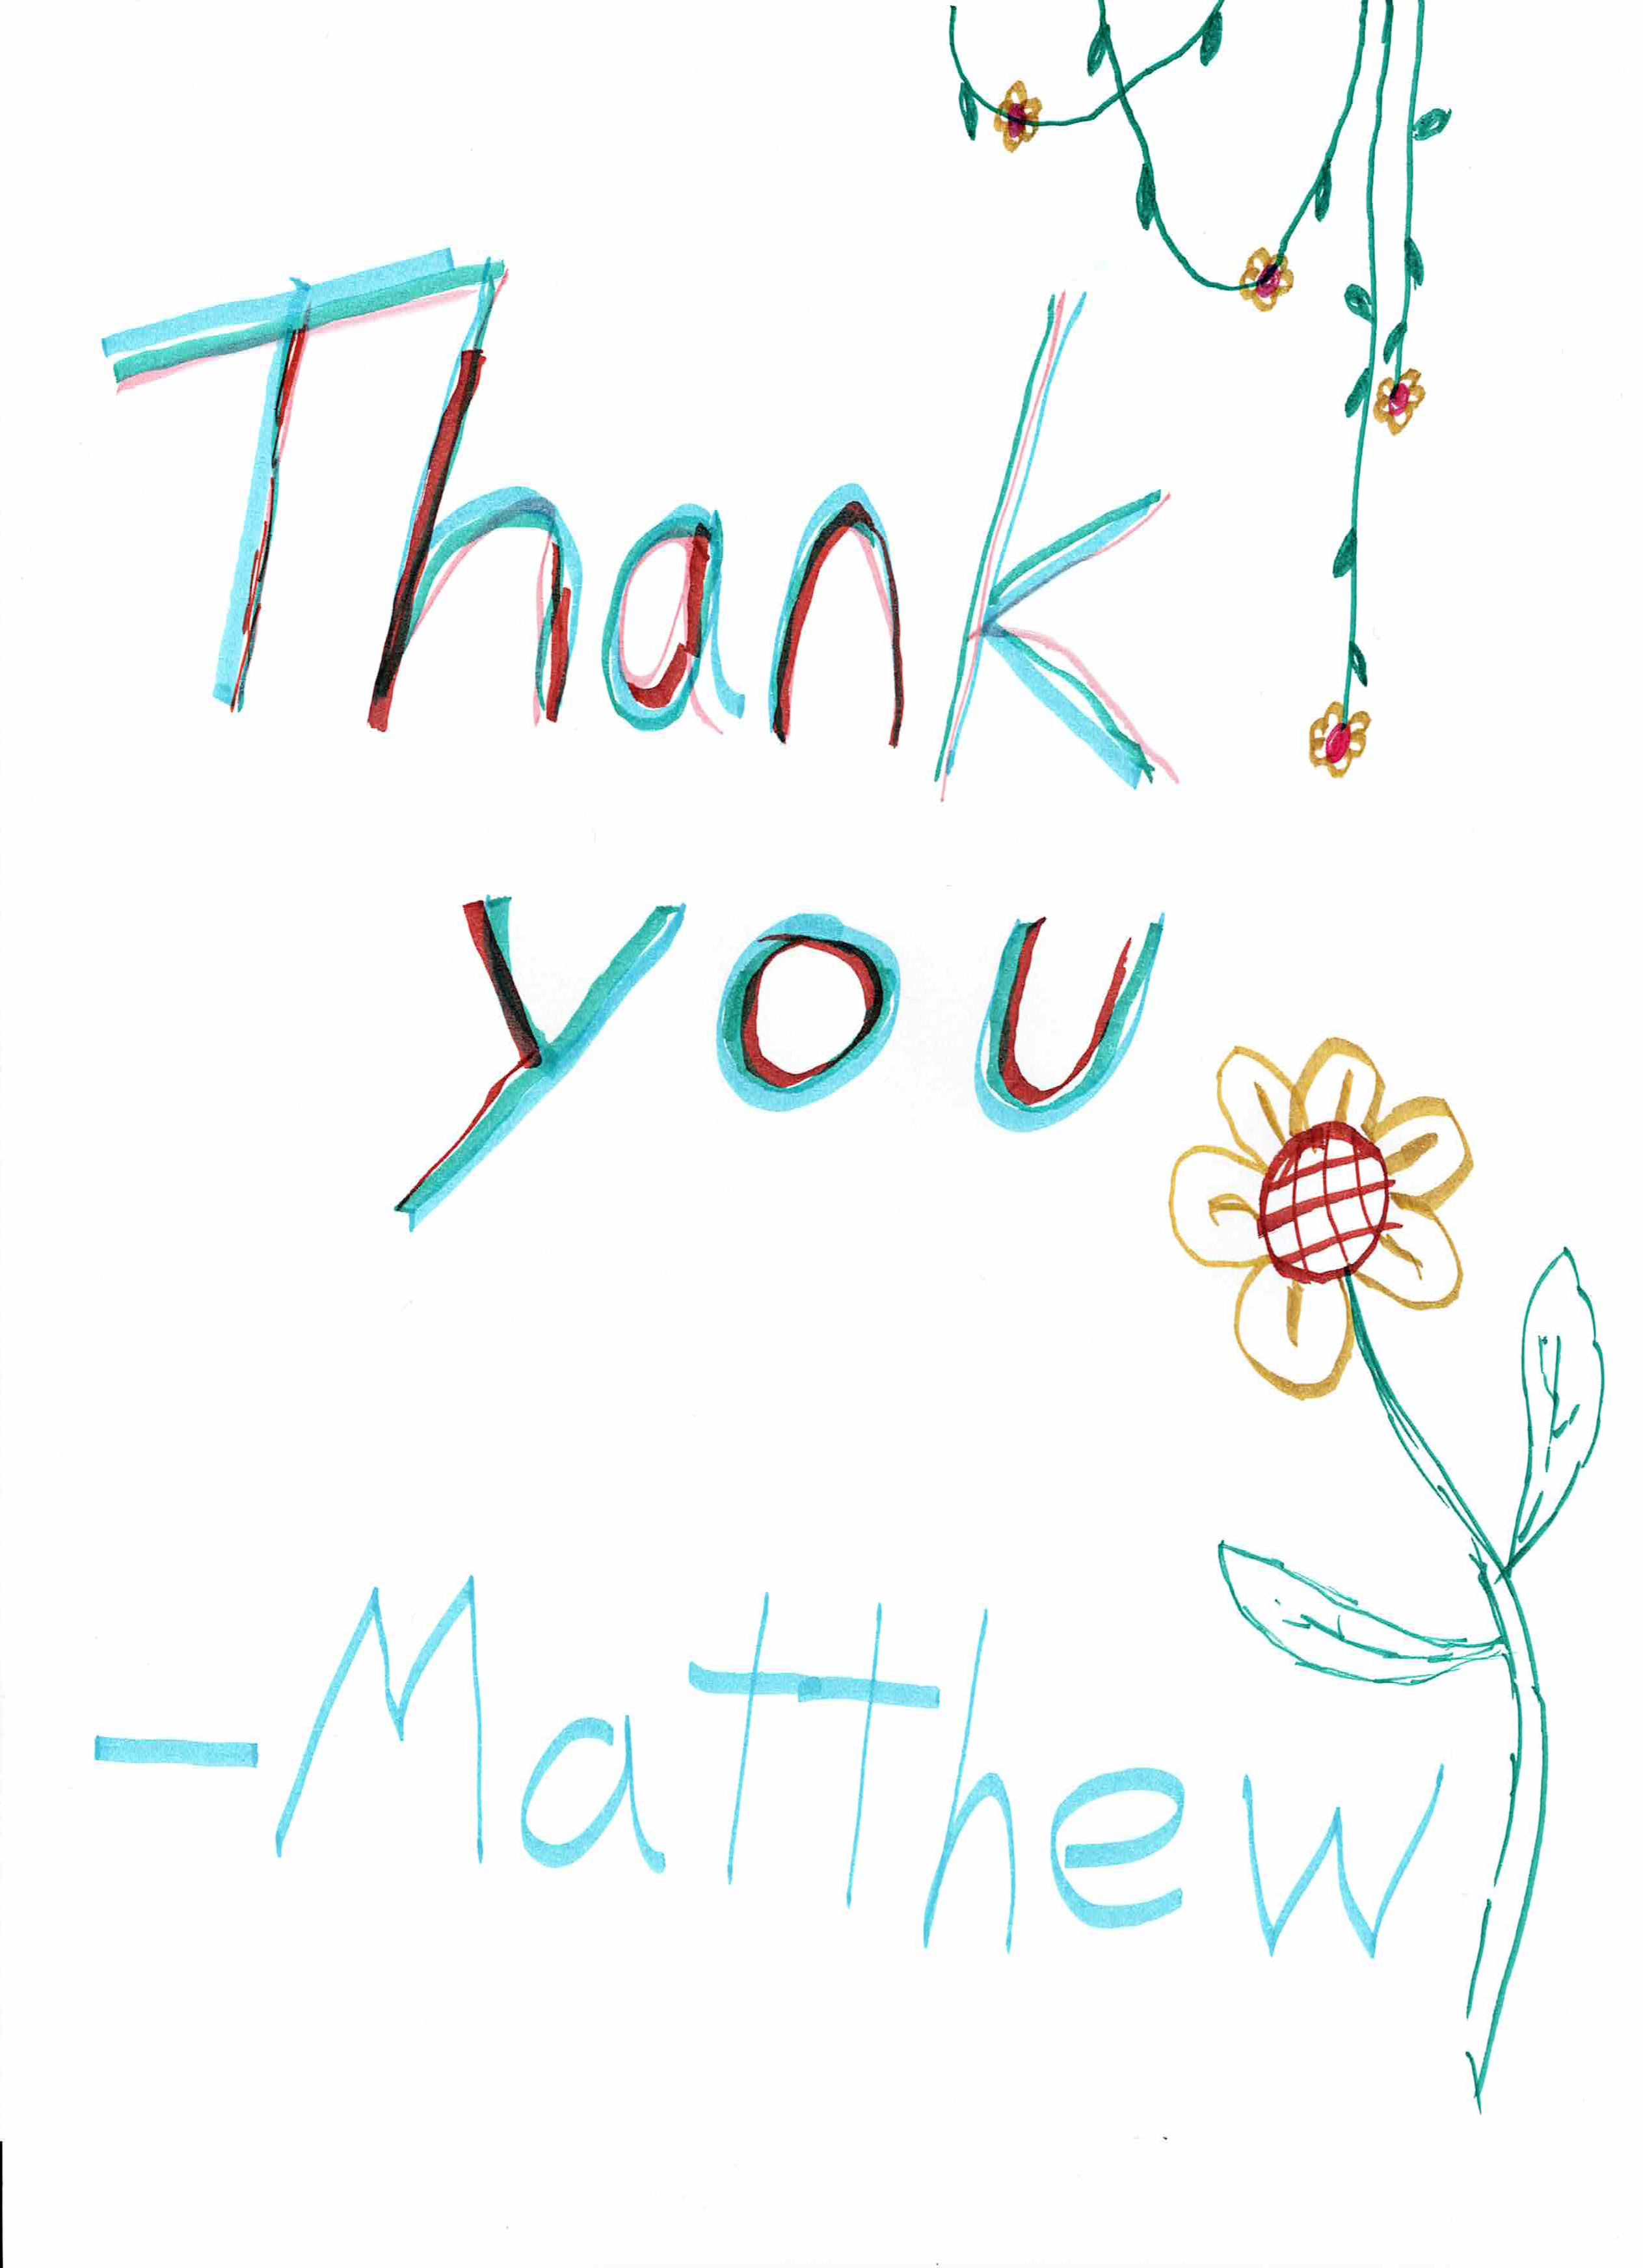 Thank
you
-Matthew